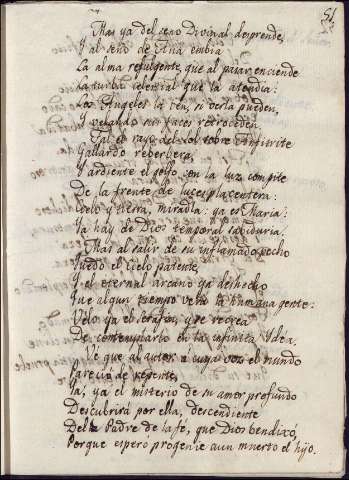 51
Mas ya del seno Divinal desprende,
Y al seno de Ana embia
La alma refulgente, que al pasar enciende
La turba celestial que la atendia:
Los Angeles la ven, si verla pueden,
Y velando sus faces retroceden
Tal el rayo del Sol sobre Anfitrite
Gallardo reberbera,
Y ardiente el golfo en la luz compite
De la frente de luces placentera:
Cielo y tierra, miradla: ya es Maria:
Ya hay de Dios temporal sabiduria.
Mas al salir de su inflamado pecho
Quedó el cielo patente,
Y el eternal arcano ya deshecho
Que algun tiempo veló la humana gente:
Velo ya el serafin, y se recrea
De contemplarlo en la infinita Ydea.
Ve que al autor a cuya voz el mundo
Parecio de repente,
Ya, ya el misterio de su amor profundo
Descubrirá por ella, descendiente
Del Padre de la fé, que Dios bendixó,
Porque esperó progenie aun muerto el hijo.